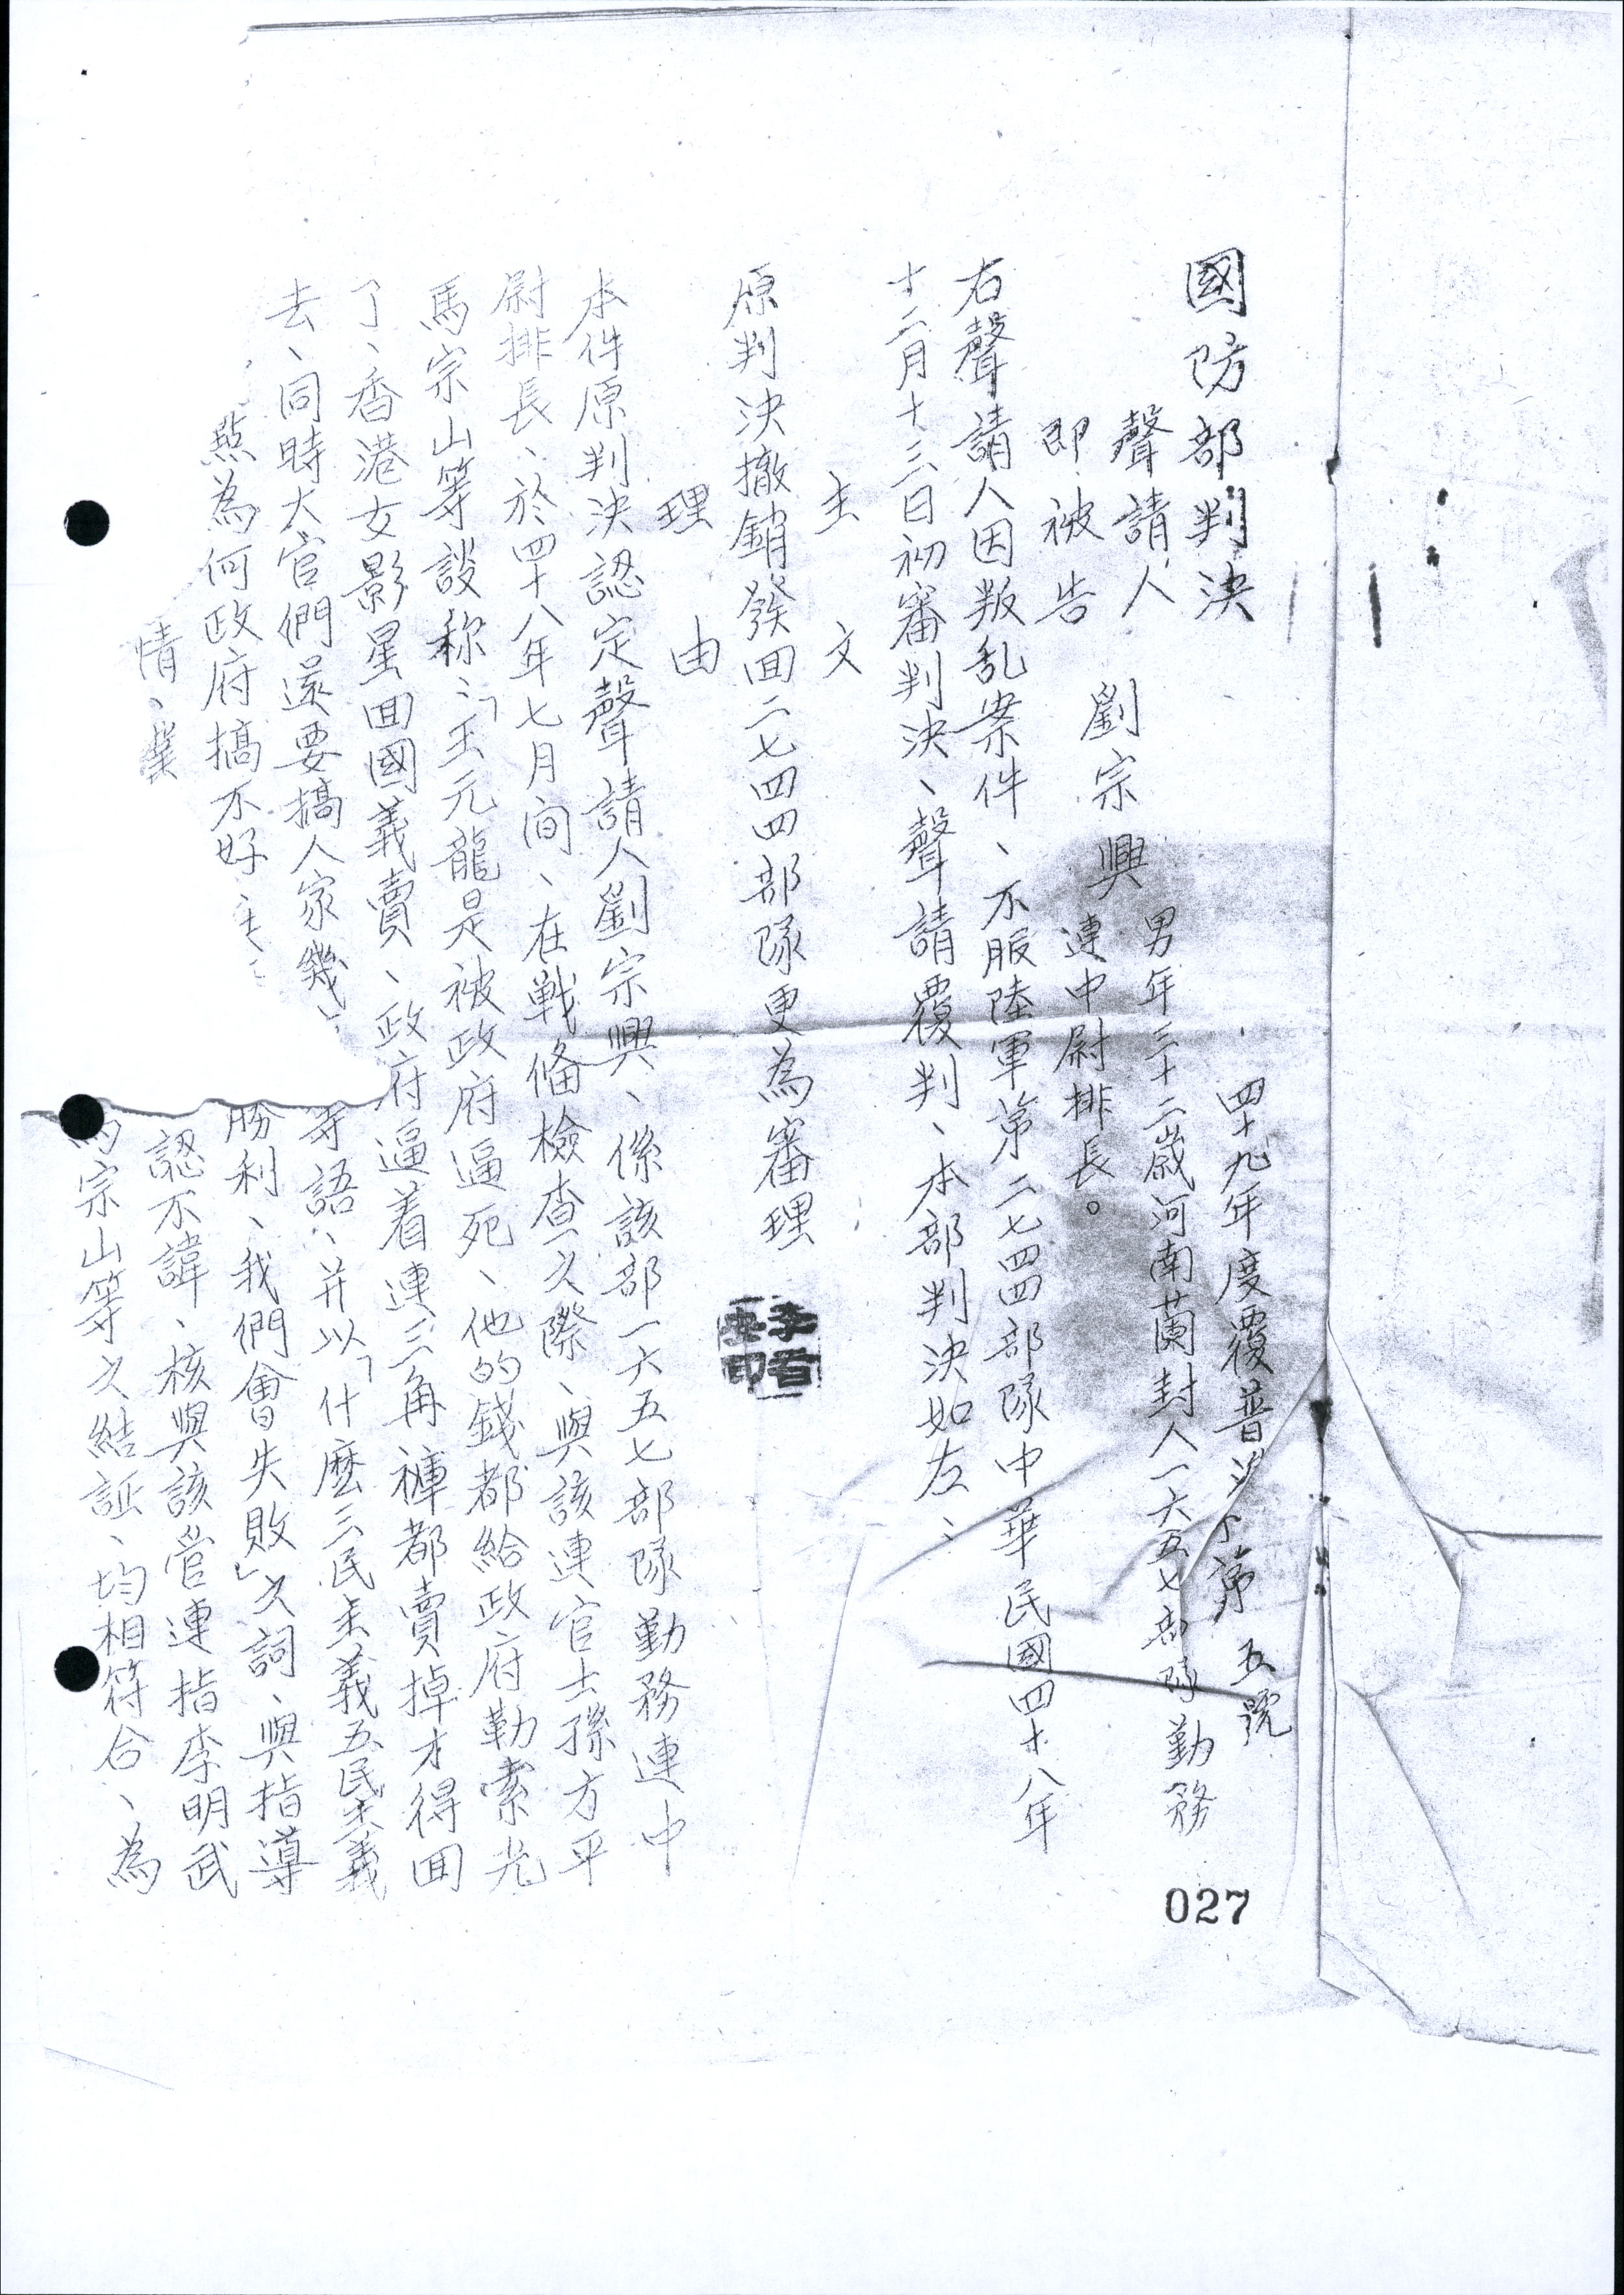 國防部判決
四十九年度覆普 第 五號
聲請人
即被告 劉宗興
男年三十二歲河南蘭封人一六五七部隊勤務
連中尉排長。
右聲請人因叛乱案件、不服陸軍第二七四四部隊中華民國四十八年
十二月十三日初審判決、聲請覆判、本部判決如左：
主 文
原判決撤銷發回二七四四部隊更為審理
李百 印
理 由
本件原判決認定聲請人劉宗興、係該部一六五七部隊勤務連中
尉排長、於四十八年七月间、在戰備檢查之際、與該連官士孫方平
馬宗山等談称：「王元龍是被政府逼死、他的錢都給政府勒索光
了、香港女影星回國義賣、政府逼着連三角褲都賣掉才得回
去、同時大官們還要搞人家幾 等語、并以「什麼三民主義五民主義
點為何政府搞不好 勝利、我們會失敗」之詞、與指導
情、業 認不諱、核與該管連指李明武
宗山等之結証、均相符合、為
027